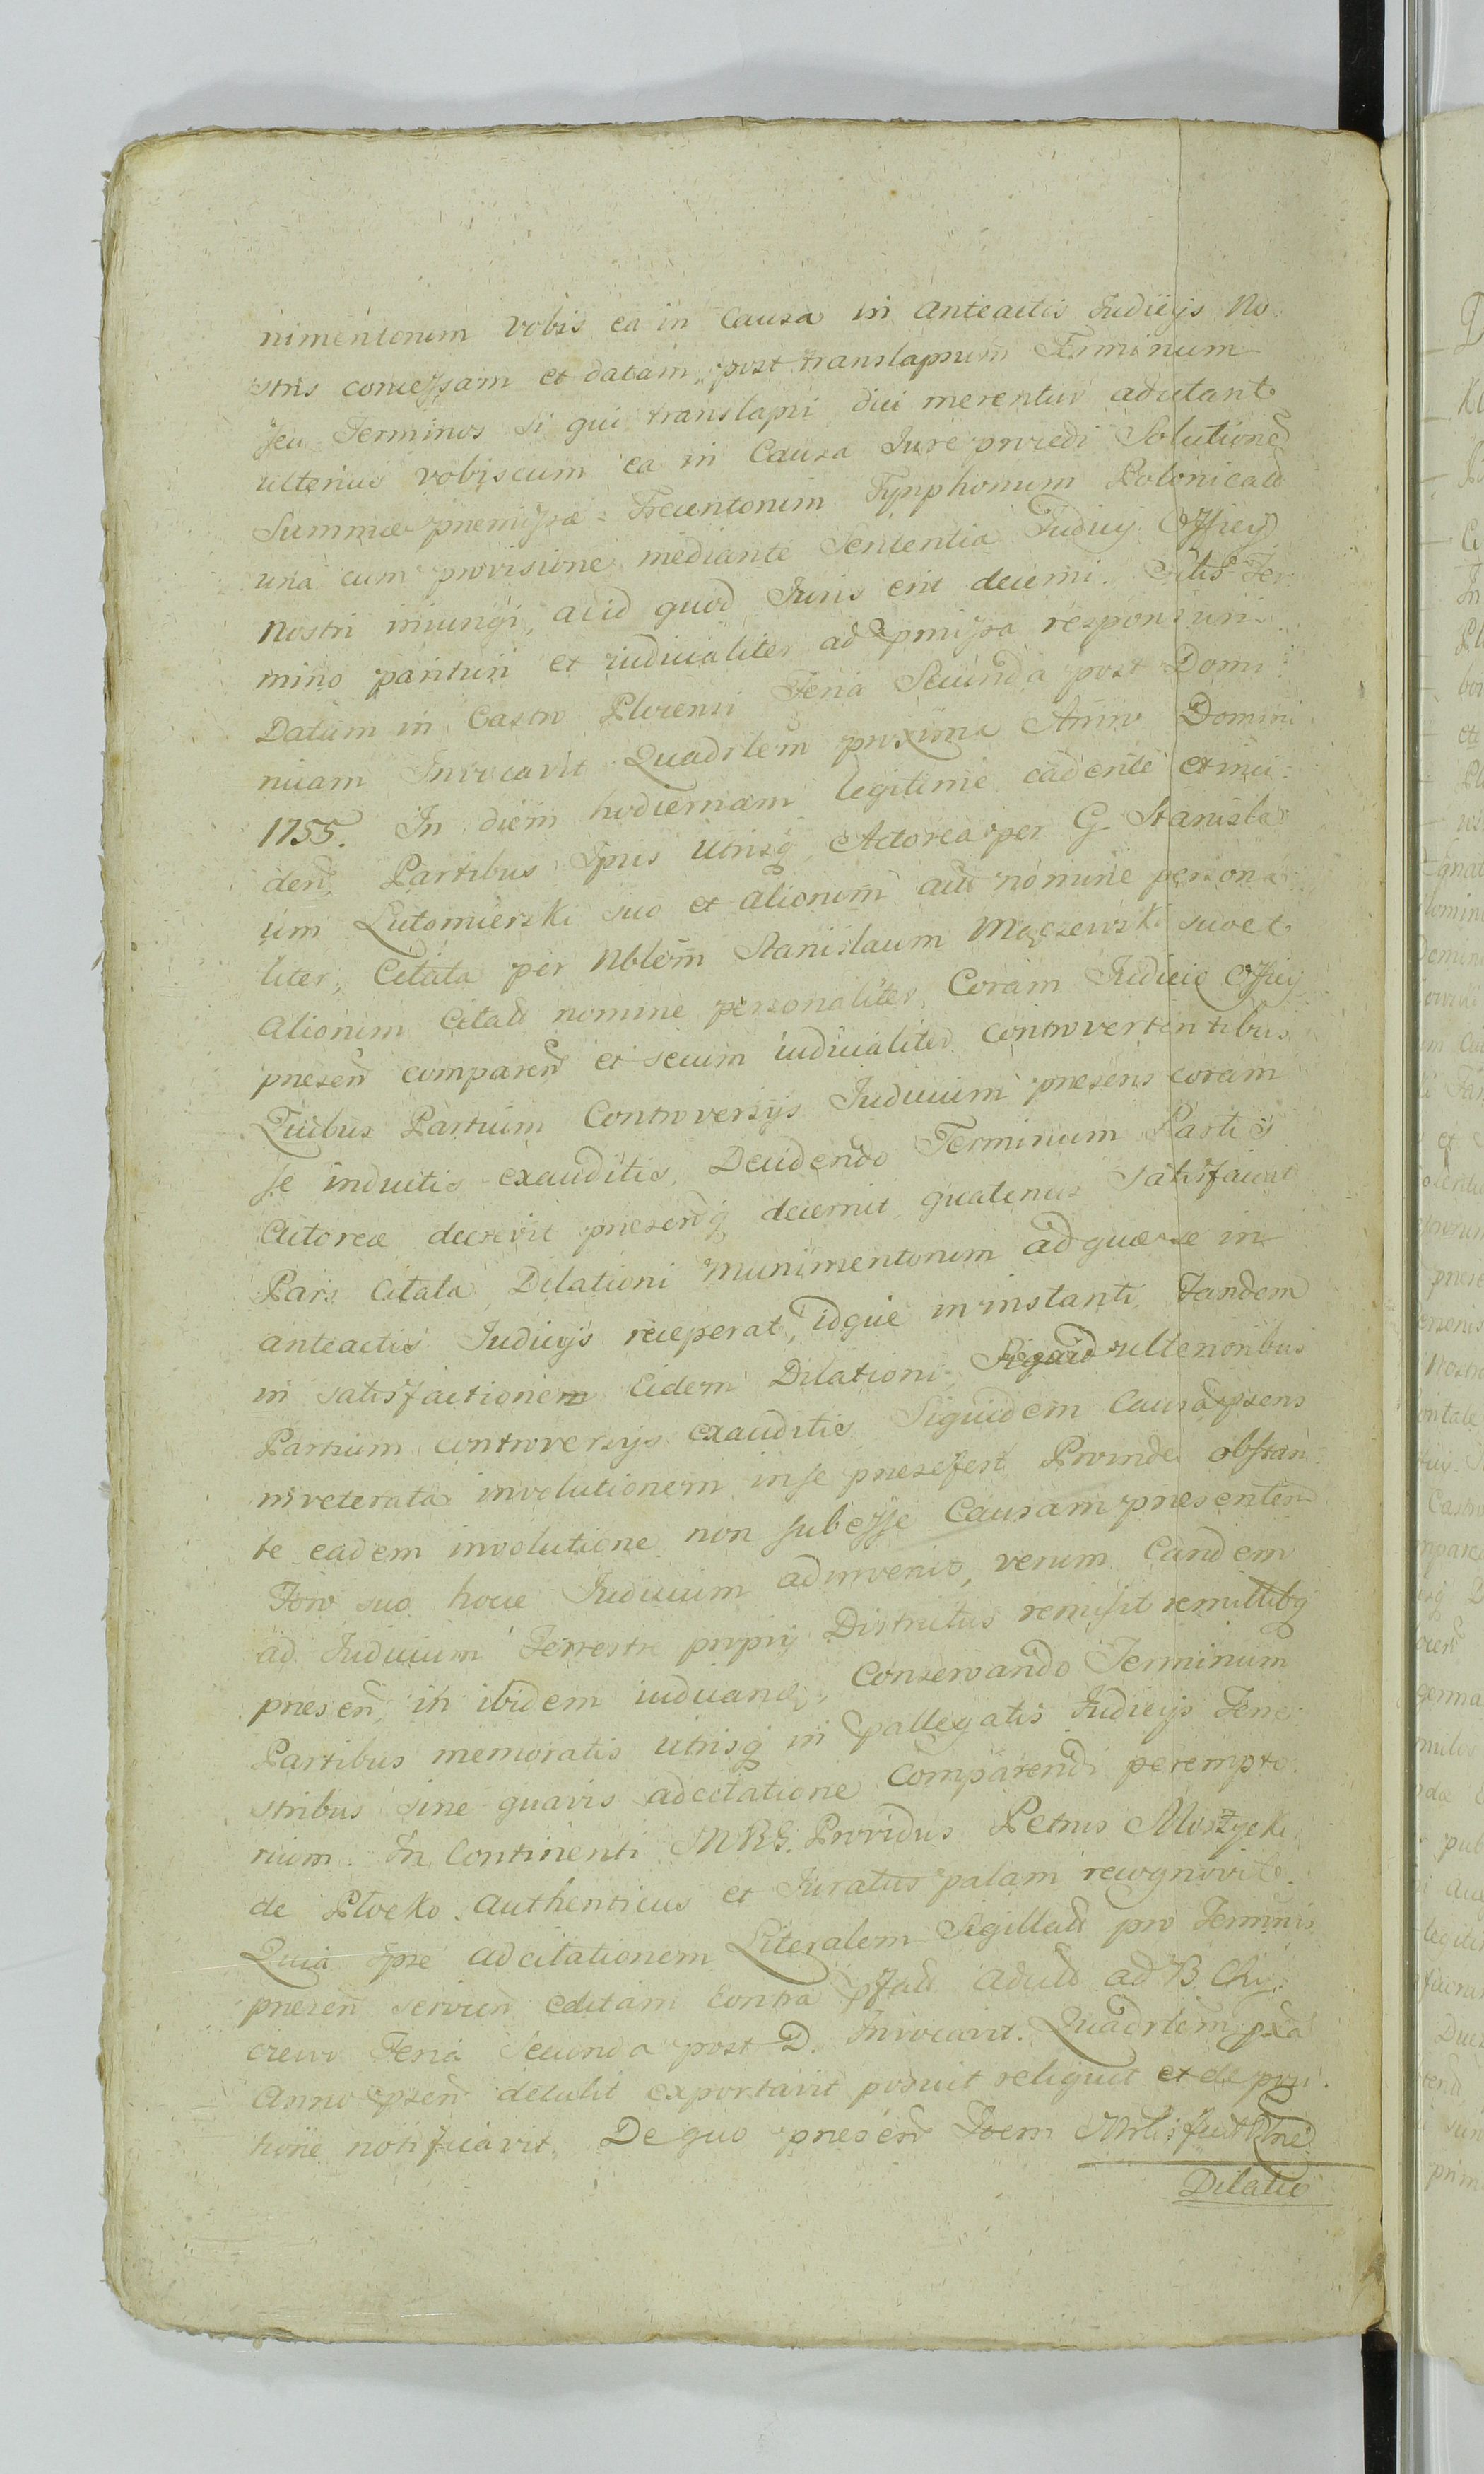 nimentorum vobis ea in Causa in anteactis Judicijs No
stris concessam et datam, post translapsum Terminum
seu Terminos si qui translapsi dici merentur adcitant
ulterius vobiscum ea in Causa Jure procedi Solutione
Summae praemissae Trecentorum Tynphonum Polonicald
una cum provisione mediante Sententia Judicij Officij
Nostri iniungi, ac id quod Juris erit decerni. Sitis Ter
mino parituri et iudicialiter ad pmissa responsuri
Datum in Castro Plocensi Feria Secunda post Domi
nicam Invocavit Quadrlem proxima Anno Domini
1755. In diem hodiernam legitime cadente et inci
den Partibus Ipsis Utrisq Actorea per G. Stanisla
um Lutomierski suo et aliorum nomine persona
liter, Citata per Nblem Stanislaum Mączewski suo et
aliorum Citatt nomine personaliter Coram Judicio Officij
presen comparen et secum iudicialiter controvertentibus
Quibus Partium Controversijs Judicium praesens coram
se inductis exauditis, Decidendo Terminum Partis
Actoreae decrevit presenq decernit quatenus satisfaciat
Pars Citata Dilationi munimentorum ad quae se in
anteactis Judicijs receperat, idque in instanti, Tandem
in satisfactionem Eidem Dilationi ulterioribus
Partium controversijs exauditis Siquidem Causa psens
inveterata involutionem in se praesefert Proinde obstan
te eadem involutione non subesse Causam praesentem
Foro suo hocce Judicium adinvenit, verum Eandem
ad Judicium Terrestre proprij Districtus remisit remittitq
presen, in ibidem iudicand, Conservando Terminum
Partibus memoratis utrisq in pallegatis Judicijs Terre
stribus sine quavis adcitatione Comparendi perempto
rium. In Continenti MRG. Providus Petrus Moszycki
de Plocko Authenticus et Juratus palam recognovit
Quia Ipse adcitationem Literalem Sigillatt pro Terminis
presen servien editam contra ad B. Chy
crewo Feria Secunda post D. Invocavit. Quadrlem pxa
Anno psen detulit exportavit posuit reliquit et de posi
tione notificavit. De quo presen Idem Mrlis fecit Rlne
Dilatio